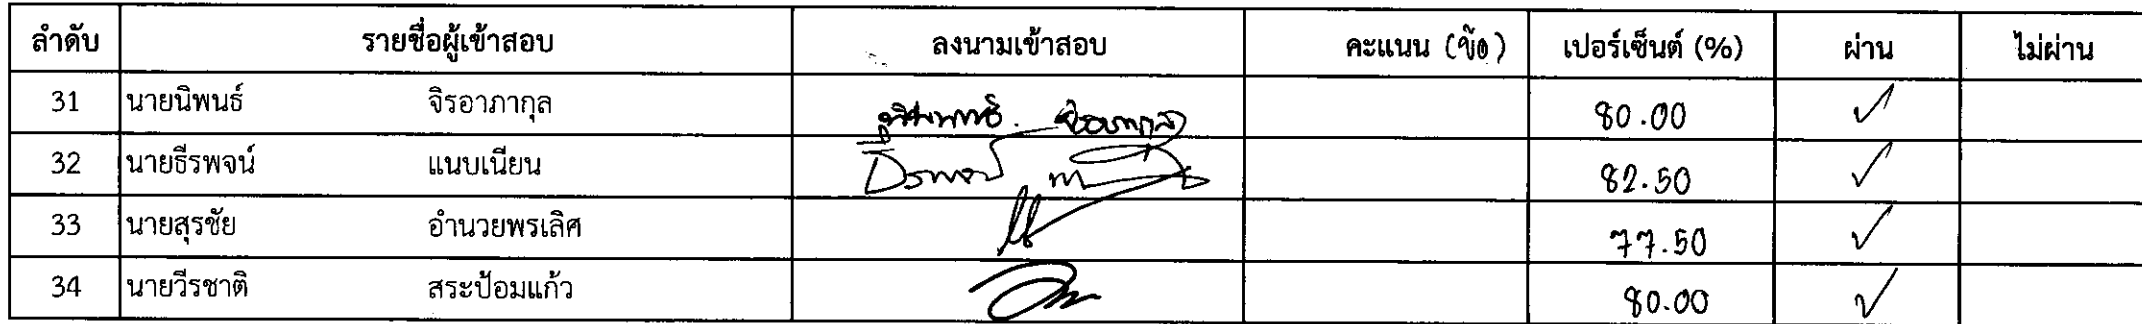 ลำดับ รายชื่อผู้เข้าสอบ ลงนามเข้าสอบ คะแนน (ข้อ) เปอร์เซ็นต์ (%) ผ่าน ไม่ผ่าน
31 นายนิพนธ์ จิรอาภากุล 80.00 ✓
32 นายธีรพจน์ แนบเนียน ธีรพจน์ 82.50 ✓
33 นายสุรชัย อำนวยพรเลิศ 77.50 ✓
34 นายวีรชาติ สระป้อมแก้ว 80.00 ✓